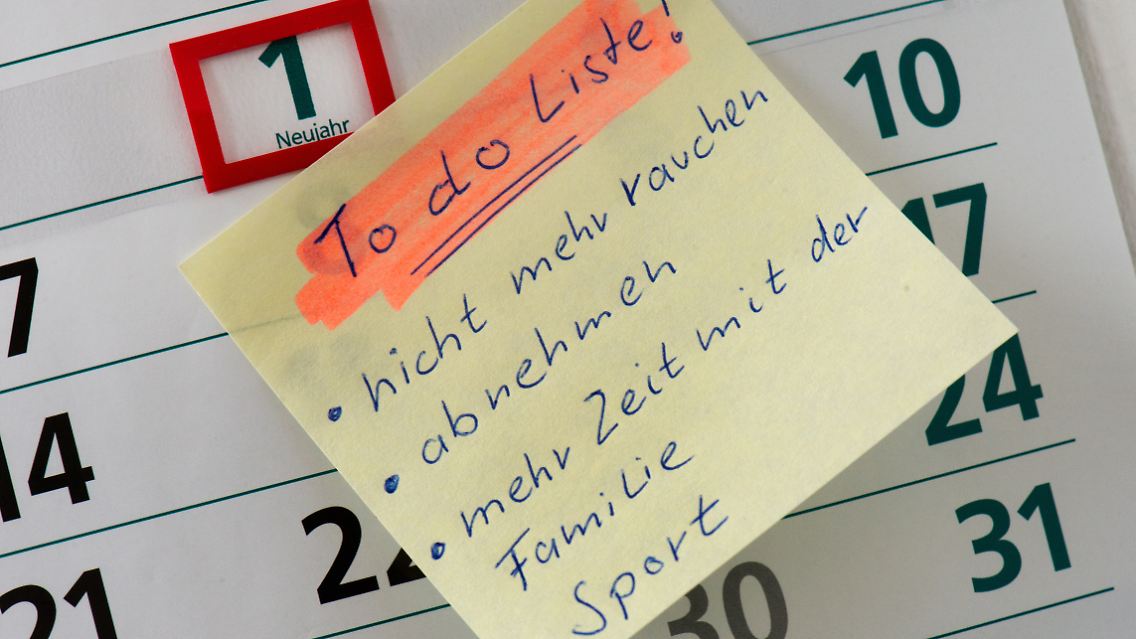 1
Neujahr
To do Liste!
• nicht mehr rauchen
• abnehmen
• mehr Zeit mit der
Familie
Sport
10
7
17
14
24
21
22
30
31